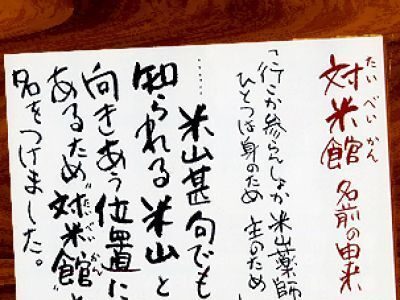 対米館 名前の由来
たいべいかん
「行こか参らんしょか 米山薬師
ひとつは身のため 主のため
……米山甚句でも
知られる米山と
向きあう位置に
あるため"対米館"と
たいべいかん
名をつけました。